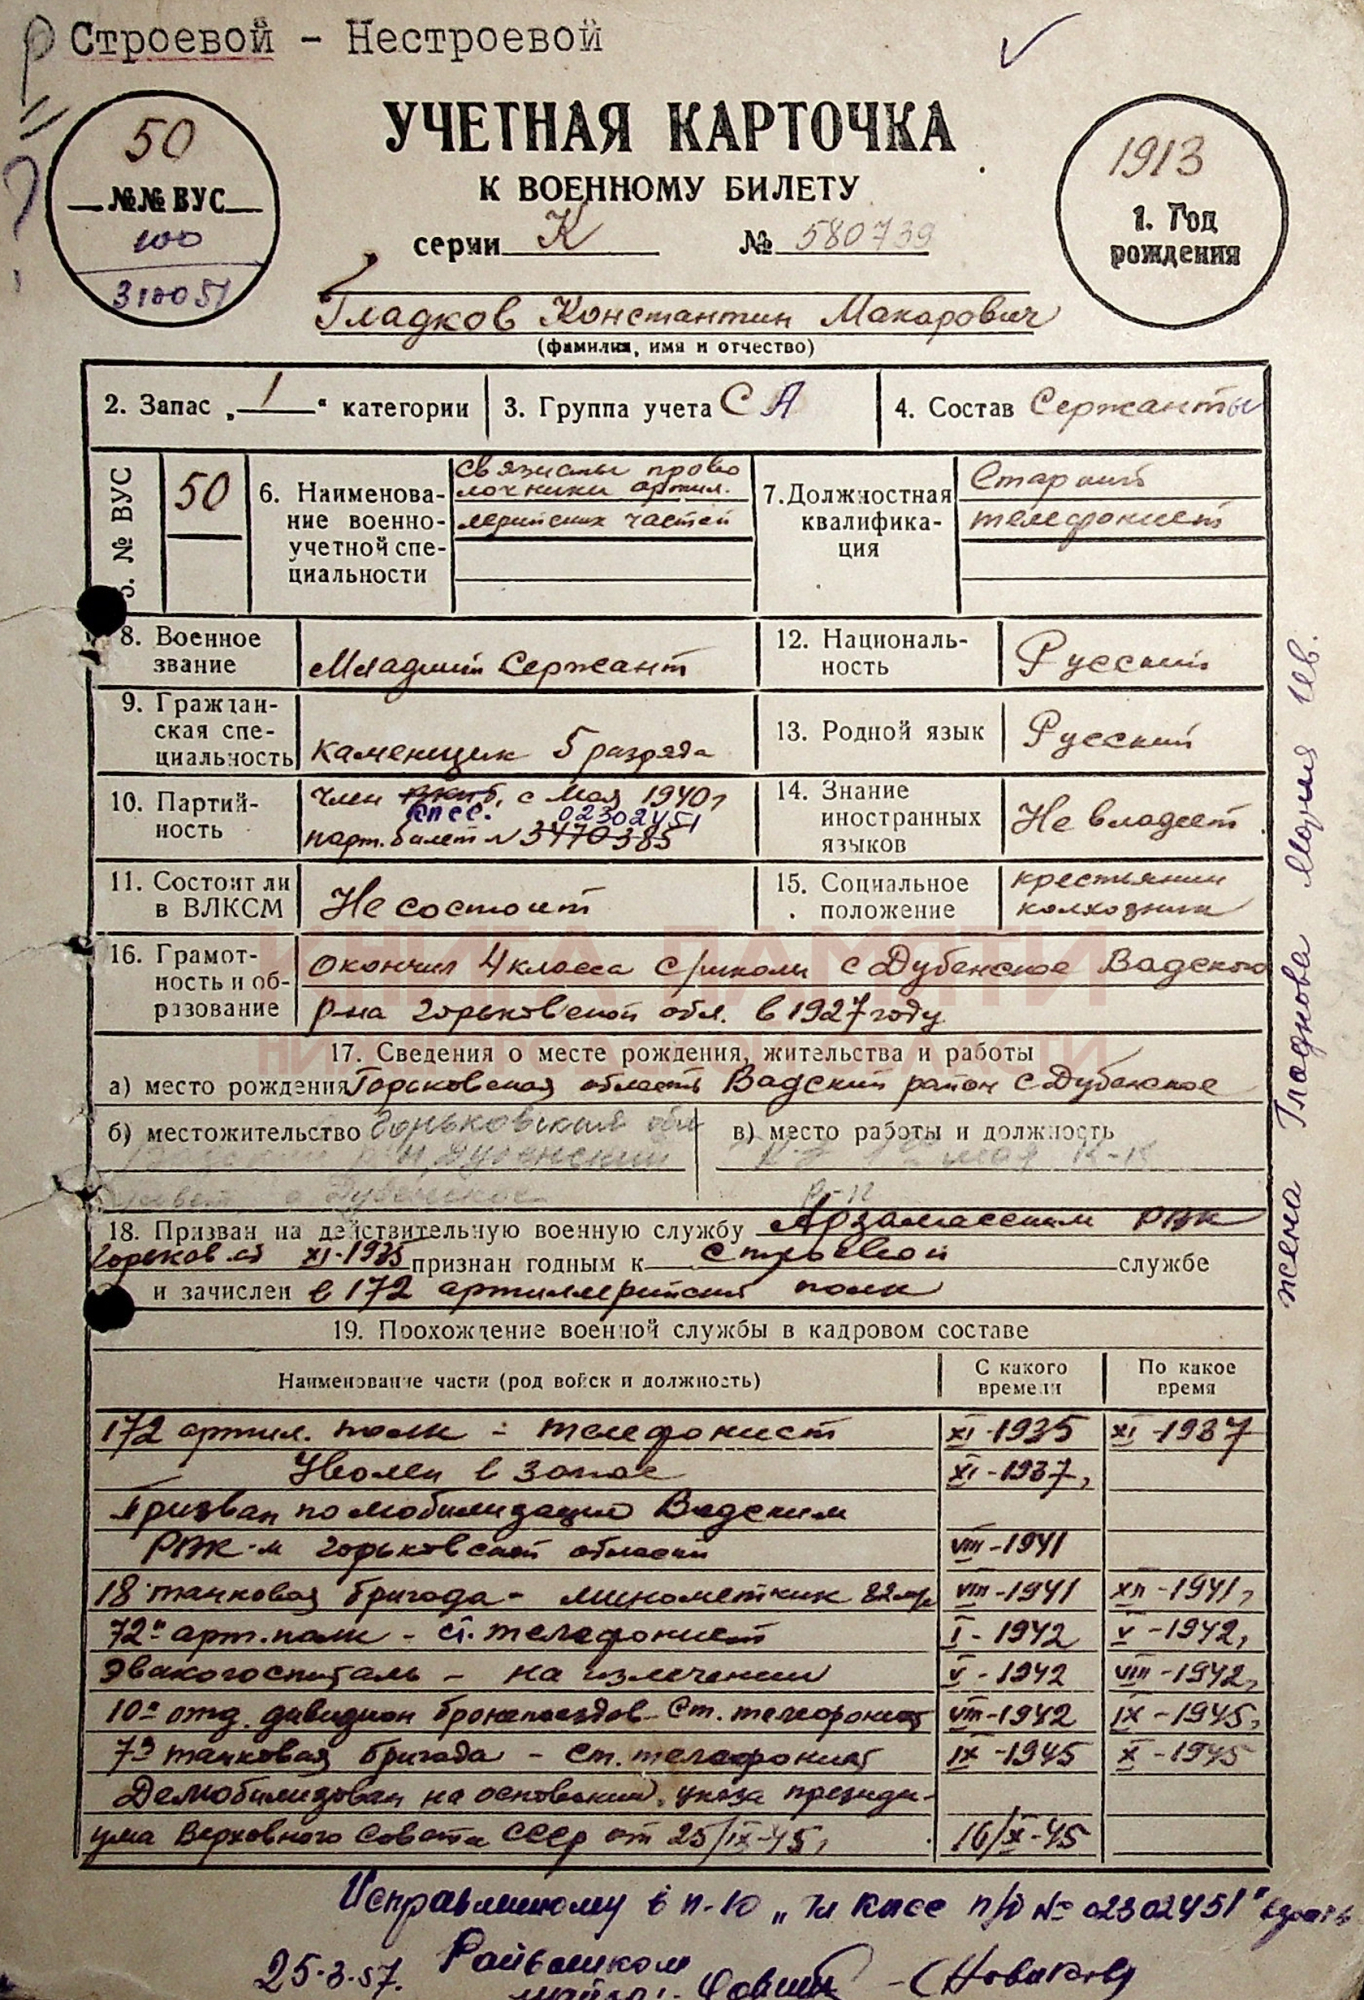 Строевой - Нестроевой
50
№№ ВУС
100
310051
УЧЕТНАЯ КАРТОЧКА
К ВОЕННОМУ БИЛЕТУ
серии К № 580739
1913
1. Год
рождения
Гладков Константин Макарович
(фамилия, имя и отчество)
2. Запас „ 1 “ категории
3. Группа учета СА
4. Состав Сержанты
5. № ВУС
50
6. Наименова-
ние военно-
учетной спе-
циальности
связисты прово
лочники артил.
лерийских частей
7. Должностная
квалифика-
ция
Старший
телефонист
8. Военное
звание
Младший Сержант
12. Националь-
ность
Русский
9. Граждан-
ская спе-
циальность
каменщик 5 разряда
13. Родной язык
Русский
10. Партий-
ность
член вкпб, с мая 1940г
кпсс. 02302451
парт. билет № 3470385
14. Знание
иностранных
языков
Не владеет
11. Состоит ли
в ВЛКСМ
Не состоит
15. Социальное
положение
крестьянин
колхозник
16. Грамот-
ность и об-
разование
окончил 4 класса с/школы с Дубенское Вадского
р-на Горьковской обл. в 1927 году
КНИГА ПАМЯТИ
НИЖЕГОРОДСКОЙ ОБЛАСТИ
17. Сведения о месте рождения, жительства и работы
а) место рождения Горьковская область Вадский район с Дубенское
б) местожительство Горьковская обл
Вадский р-н, Дубенский
совет с Дубенское
в) место работы и должность
к-з 1е мая к-к
18. Призван на действительную военную службу Арзамасским РВК
Горьков об XI-1935 признан годным к строевой службе
и зачислен в 172 артиллерийский полк
19. Прохождение военной службы в кадровом составе
Наименование части (род войск и должность)
С какого
времени
По какое
время
172 артил. полк - телефонист XI-1935 XI-1937
Уволен в запас XI-1937,
Призван по мобилизации Вадским
РВК-м Горьковской области VIII-1941
18 танковая бригада - минометчик 82мм VIII-1941 XII-1941,
72й арт. полк - ст. телефонист I-1942 V-1942,
Эвакогоспиталь - на излечении V-1942 VIII-1942,
10й отд. дивизион бронепоездов - Ст. телефонист VIII-1942 IX-1945,
73 танковая бригада - ст. телефонист IX-1945 X-1945
Демобилизован на основании указа президи-
ума Верховного Совета СССР от 25/IX-45, 16/X-45
жена Гладкова Мария Ив.
Исправленному в п. 10 „чл кпсс п/б № 02302451"
25-3-57. Райвоенком
майор (Новиков)